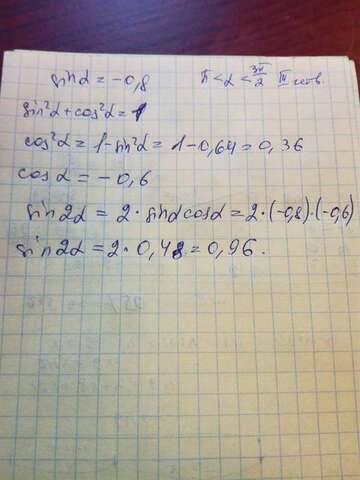 sinα = -0,8 π < α < 3π/2 III четв.
sin²α + cos²α = 1
cos²α = 1 - sin²α = 1 - 0,64 = 0,36
cosα = -0,6
sin2α = 2 · sinα cosα = 2 · (-0,8) · (-0,6)
sin2α = 2 · 0,48 = 0,96.